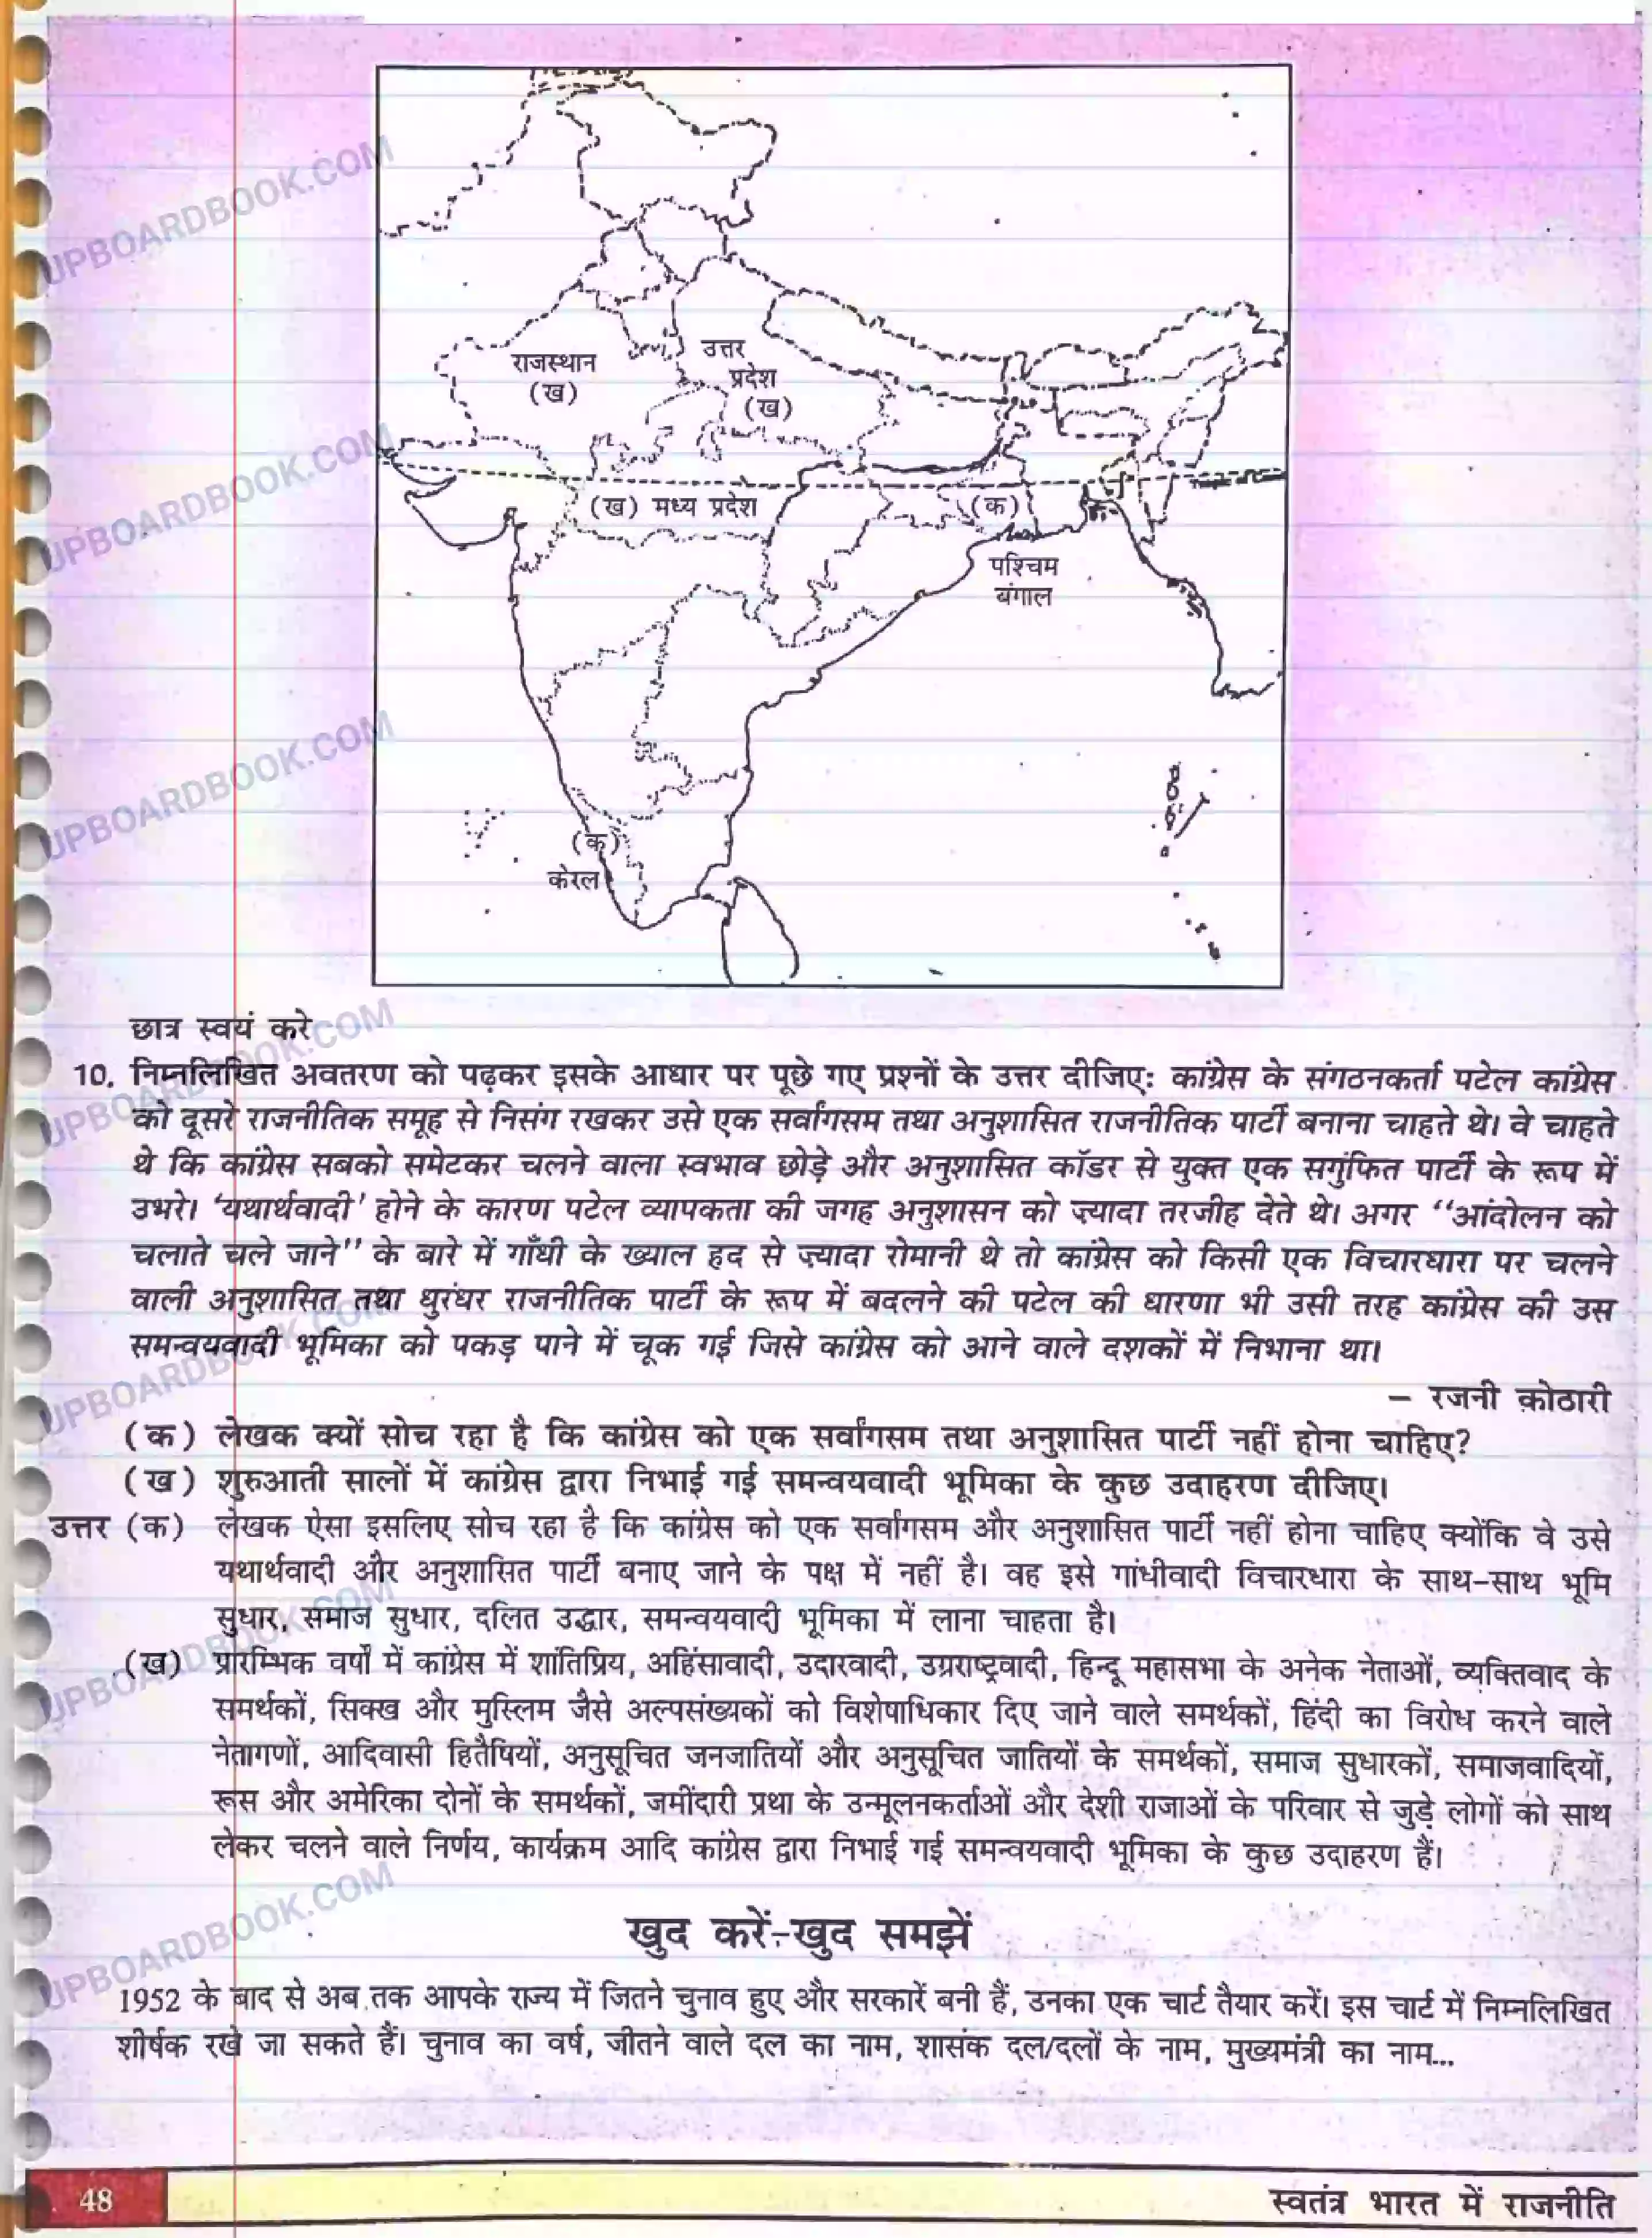 राजस्थान
(ख)
उत्तर
प्रदेश
(ख)
(ख) मध्य प्रदेश
(क)
पश्चिम
बंगाल
(क)
केरल
छात्र स्वयं करे
10. निम्नलिखित अवतरण को पढ़कर इसके आधार पर पूछे गए प्रश्नों के उत्तर दीजिएः कांग्रेस के संगठनकर्ता पटेल कांग्रेस
को दूसरे राजनीतिक समूह से निसंग रखकर उसे एक सर्वांगसम तथा अनुशासित राजनीतिक पार्टी बनाना चाहते थे। वे चाहते
थे कि कांग्रेस सबको समेटकर चलने वाला स्वभाव छोड़े और अनुशासित कॉडर से युक्त एक सगुंफित पार्टी के रूप में
उभरे। 'यथार्थवादी' होने के कारण पटेल व्यापकता की जगह अनुशासन को ज़्यादा तरजीह देते थे। अगर "आंदोलन को
चलाते चले जाने" के बारे में गाँधी के ख्याल हद से ज़्यादा रोमानी थे तो कांग्रेस को किसी एक विचारधारा पर चलने
वाली अनुशासित तथा धुरंधर राजनीतिक पार्टी के रूप में बदलने की पटेल की धारणा भी उसी तरह कांग्रेस की उस
समन्वयवादी भूमिका को पकड़ पाने में चूक गई जिसे कांग्रेस को आने वाले दशकों में निभाना था।
– रजनी क़ोठारी
(क) लेखक क्यों सोच रहा है कि कांग्रेस को एक सर्वांगसम तथा अनुशासित पार्टी नहीं होना चाहिए?
(ख) शुरुआती सालों में कांग्रेस द्वारा निभाई गई समन्वयवादी भूमिका के कुछ उदाहरण दीजिए।
उत्तर (क) लेखक ऐसा इसलिए सोच रहा है कि कांग्रेस को एक सर्वांगसम और अनुशासित पार्टी नहीं होना चाहिए क्योंकि वे उसे
यथार्थवादी और अनुशासित पार्टी बनाए जाने के पक्ष में नहीं है। वह इसे गांधीवादी विचारधारा के साथ-साथ भूमि
सुधार, समाज सुधार, दलित उद्धार, समन्वयवादी भूमिका में लाना चाहता है।
(ख) प्रारम्भिक वर्षों में कांग्रेस में शांतिप्रिय, अहिंसावादी, उदारवादी, उग्रराष्ट्रवादी, हिन्दू महासभा के अनेक नेताओं, व्यक्तिवाद के
समर्थकों, सिक्ख और मुस्लिम जैसे अल्पसंख्यकों को विशेषाधिकार दिए जाने वाले समर्थकों, हिंदी का विरोध करने वाले
नेतागणों, आदिवासी हितैषियों, अनुसूचित जनजातियों और अनुसूचित जातियों के समर्थकों, समाज सुधारकों, समाजवादियों,
रूस और अमेरिका दोनों के समर्थकों, जमींदारी प्रथा के उन्मूलनकर्ताओं और देशी राजाओं के परिवार से जुड़े लोगों को साथ
लेकर चलने वाले निर्णय, कार्यक्रम आदि कांग्रेस द्वारा निभाई गई समन्वयवादी भूमिका के कुछ उदाहरण हैं।
खुद करें-खुद समझें
1952 के बाद से अब तक आपके राज्य में जितने चुनाव हुए और सरकारें बनी हैं, उनका एक चार्ट तैयार करें। इस चार्ट में निम्नलिखित
शीर्षक रखे जा सकते हैं। चुनाव का वर्ष, जीतने वाले दल का नाम, शासंक दल/दलों के नाम, मुख्यमंत्री का नाम...
48
स्वतंत्र भारत में राजनीति
UPBOARDBOOK.COM
UPBOARDBOOK.COM
UPBOARDBOOK.COM
UPBOARDBOOK.COM
UPBOARDBOOK.COM
UPBOARDBOOK.COM
UPBOARDBOOK.COM